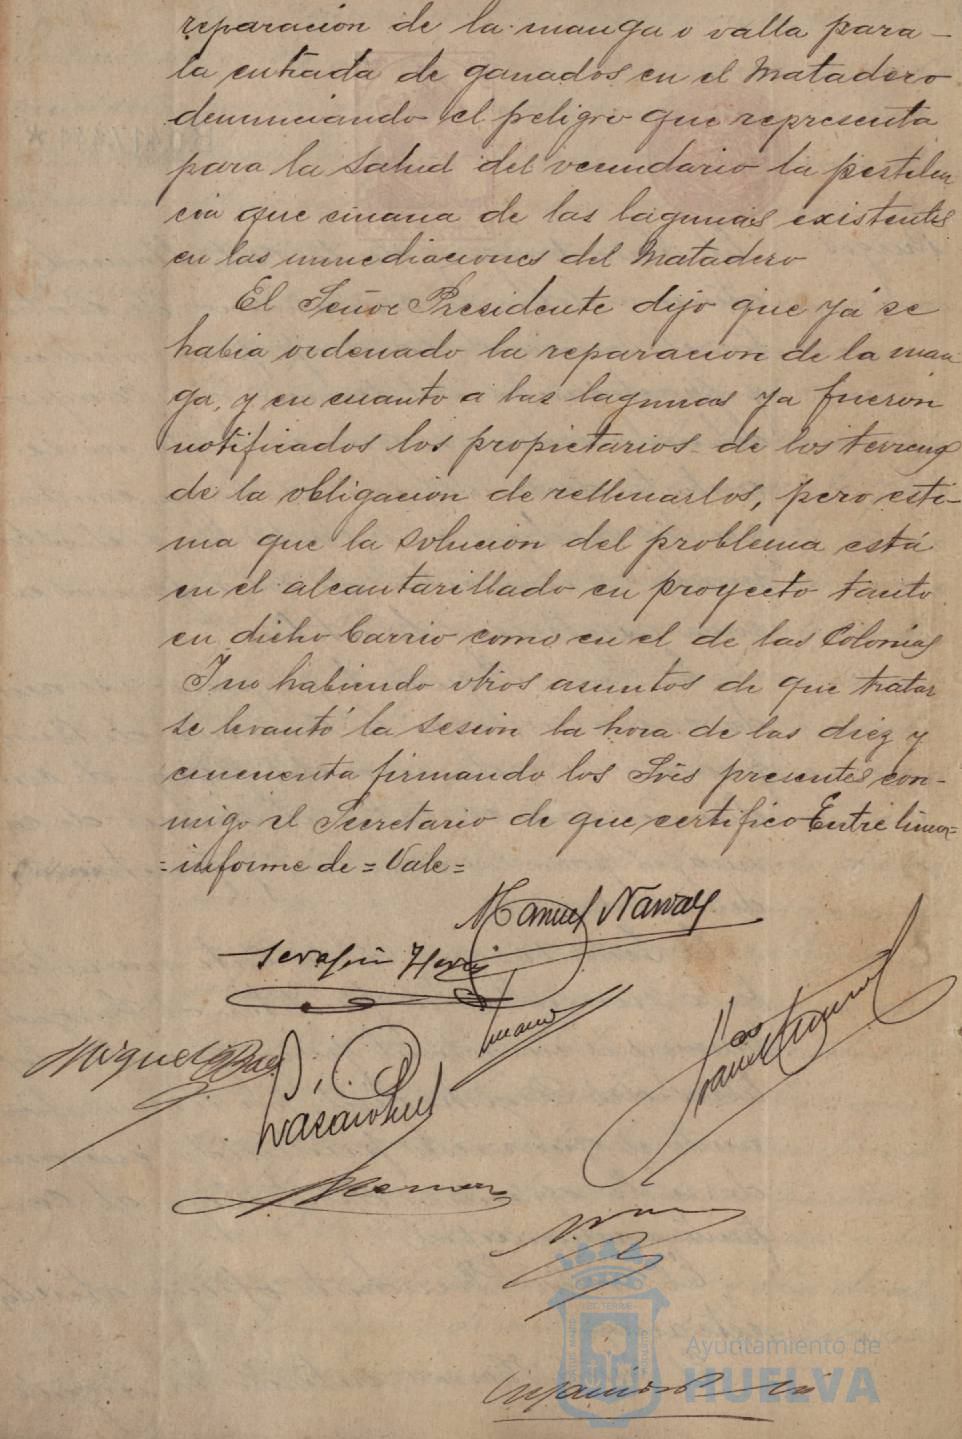 reparación de la manga o valla para
la entrada de ganados en el Matadero
denunciando el peligro que representa
para la salud del vecindario la pestilen
cia que emana de las lagunas existentes
en las inmediaciones del Matadero
El Señor Presidente dijo que yá se
habia ordenado la reparacion de la man
ga, y en cuanto a las lagunas ya fueron
notificados los propietarios de los terrenos
de la obligación de rellenarlos, pero esti-
ma que la solucion del problema está
en el alcantarillado en proyecto tanto
en dicho barrio como en el de las Colonias
Y no habiendo otros asuntos de que tratar
se levantó la sesión la hora de las diez y
cincuenta firmando los Sres presentes con-
migo el Secretario de que certifico Entre lineas=
=informe de = Vale=
Manuel
Serafin
Miguel
Ayuntamiento de
HUELVA